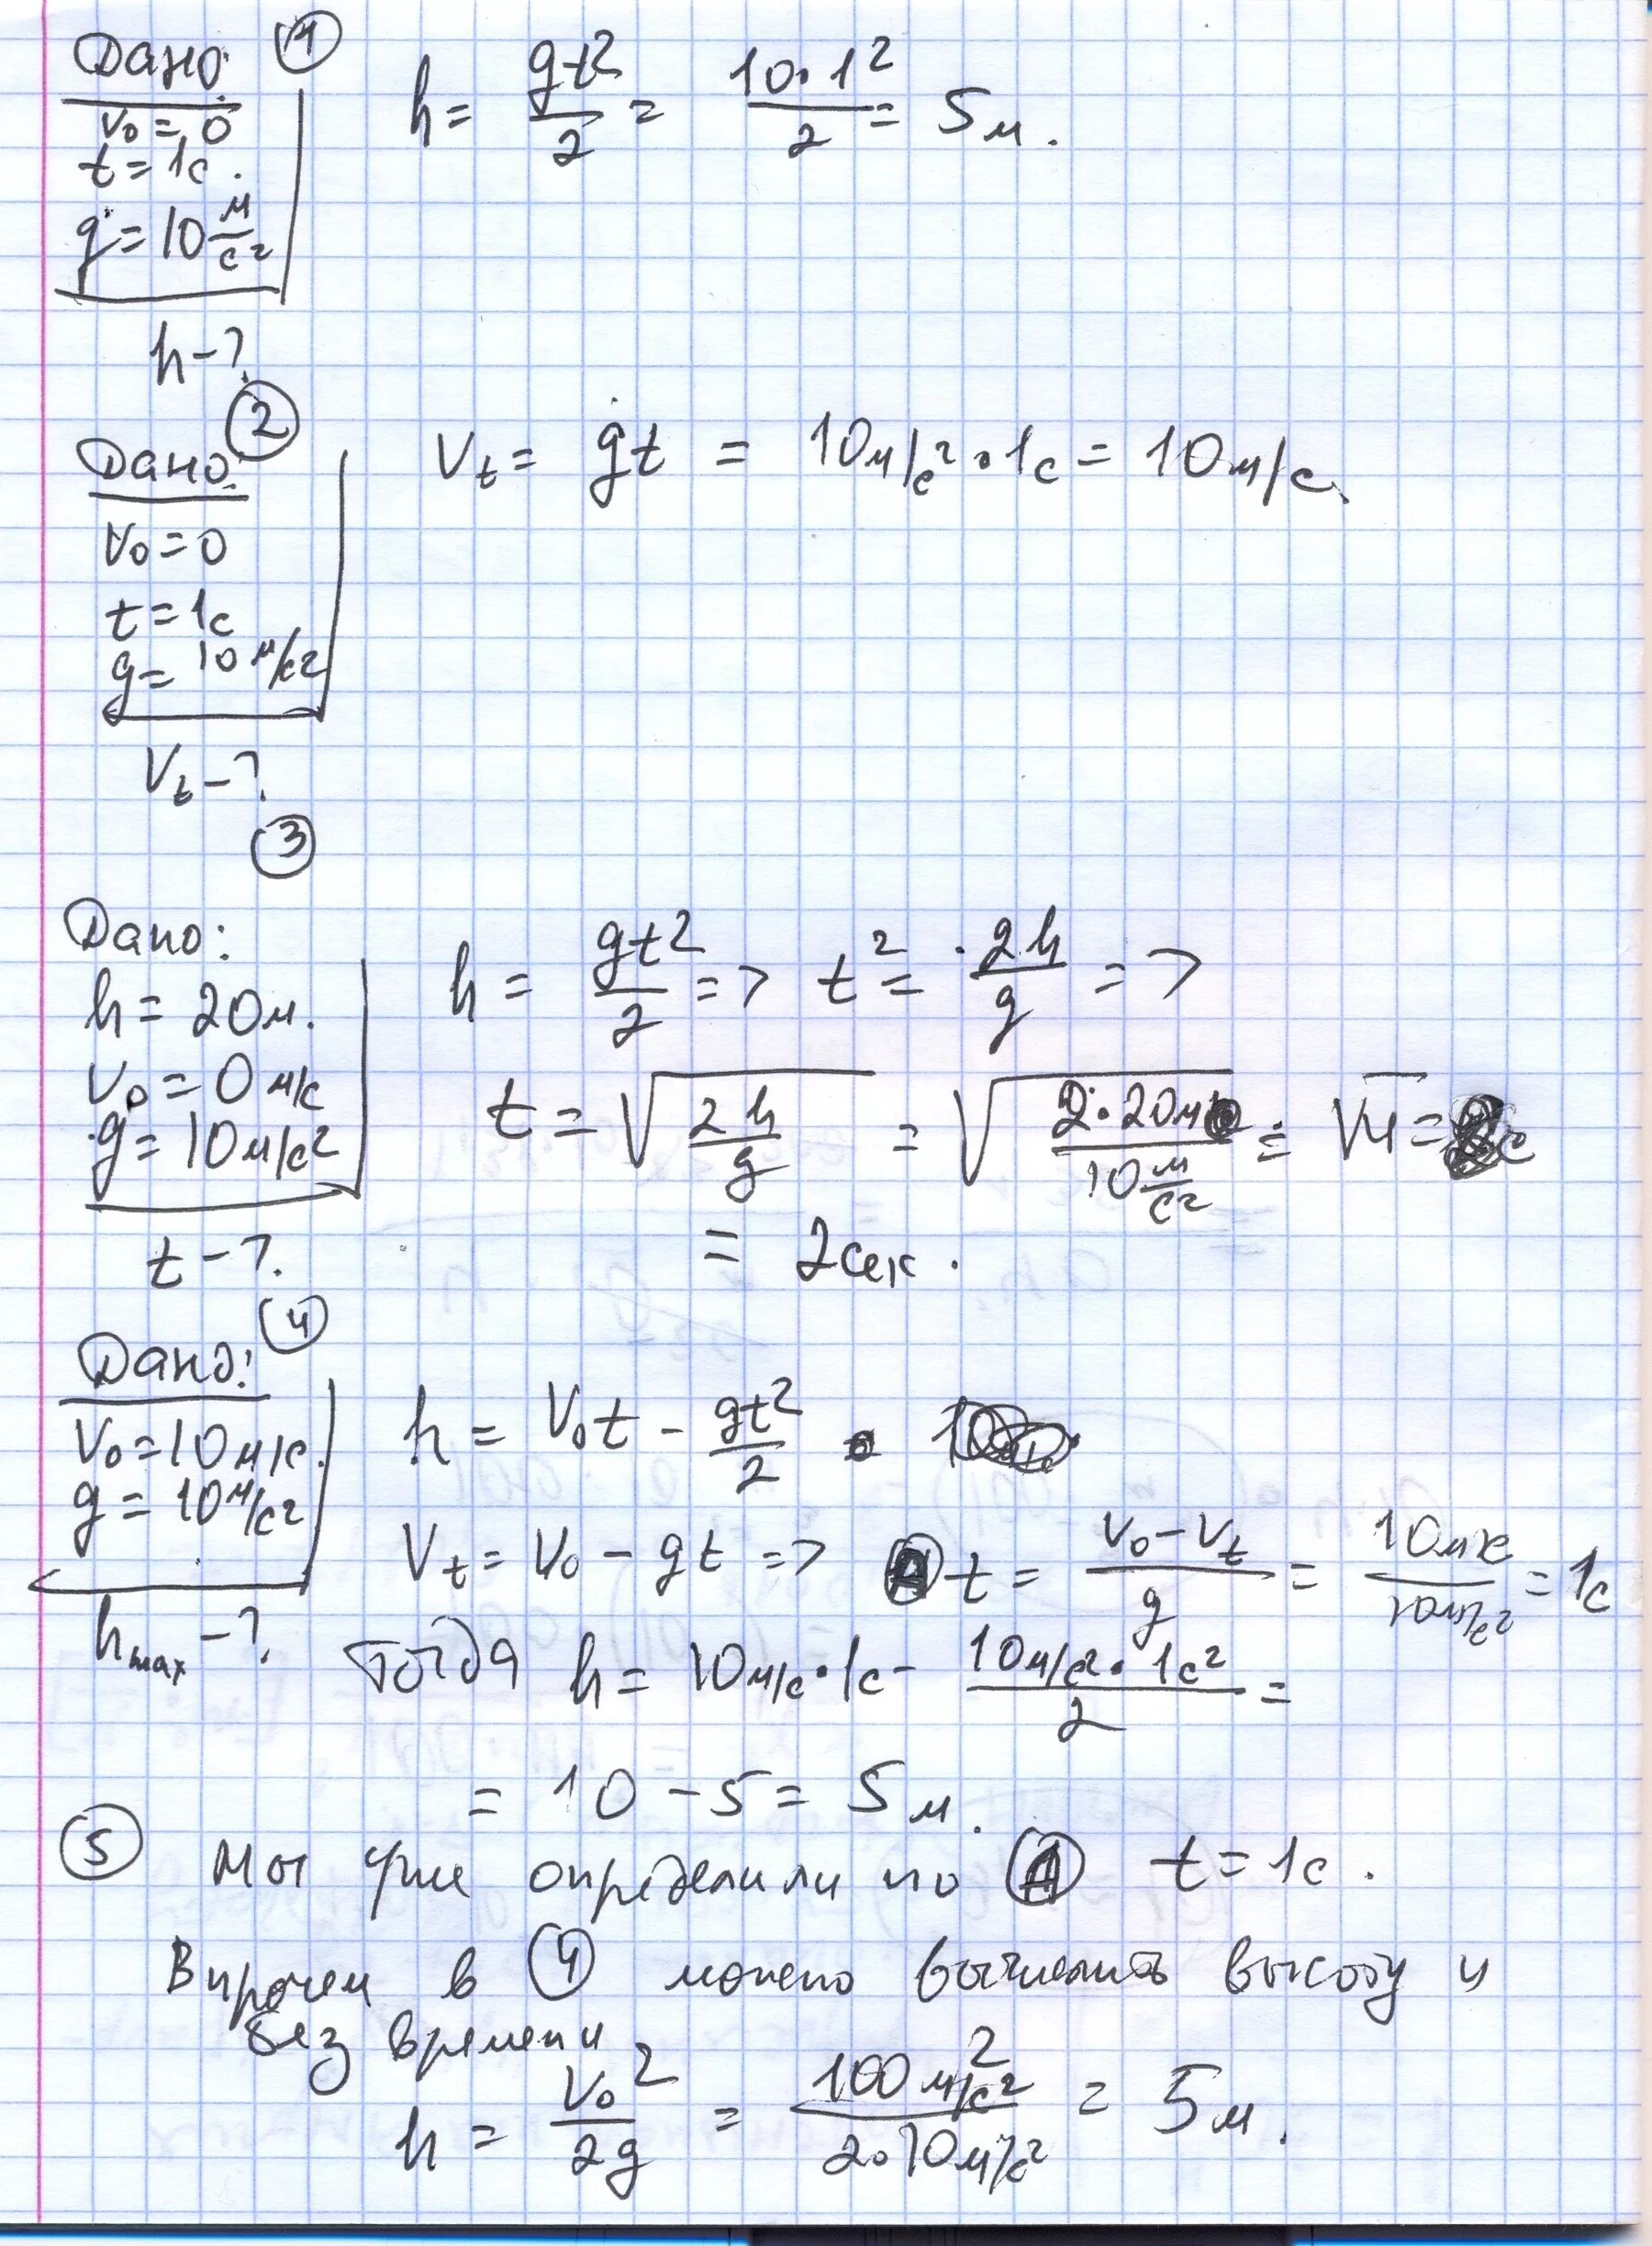 Дано: ①
V₀ = 0
t = 1с.
g = 10 м/с²
h - ?
h = gt²/2 = 10·1²/2 = 5м.
②
Дано:
V₀ = 0
t = 1с
g = 10 м/с²
Vt - ?
Vt = gt = 10м/с²·1с = 10м/с.
③
Дано:
h = 20м.
V₀ = 0 м/с
g = 10м/с²
t - ?
h = gt²/2 => t² = 2h/g =>
t = √(2h/g) = √(2·20м/10м/с²) = √4 = с
= 2сек.
④
Дано:
V₀ = 10м/с.
g = 10м/с²
hmax - ?
h = V₀t - gt²/2
Vt = V₀ - gt => t = (V₀ - Vt)/g = 10м/с/10м/с² = 1с
Тогда h = 10м/с·1с - 10м/с²·1с²/2 =
= 10 - 5 = 5м.
⑤ Мы уже определили по t = 1с.
Впрочем в ④ можно вычислить высоту и
без времени
h = V₀²/2g = 100м²/с²/2·10м/с² = 5м.